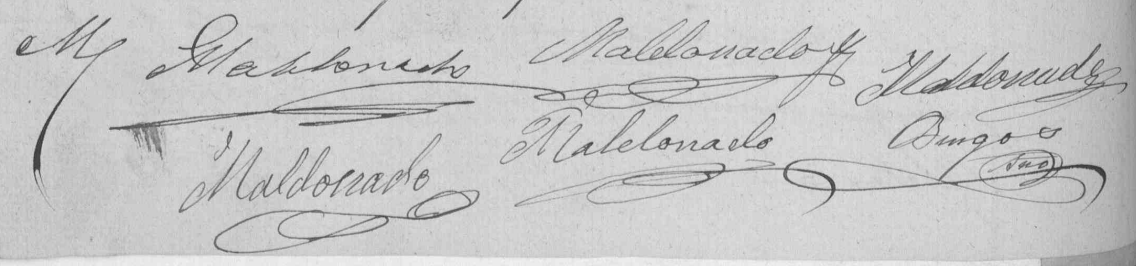 M Maldonado Maldonado Maldonado
Maldonado Maldonado Burgos